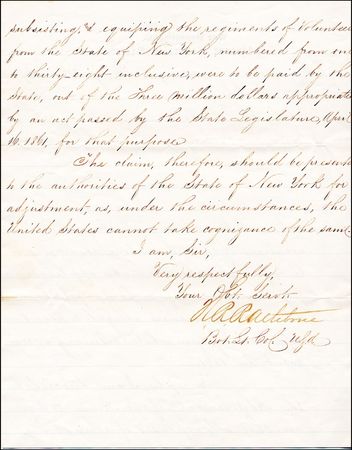 subsisting, & equiping the regiments of Volunteer
from the State of New York, numbered from one
to thirty-eight inclusive, were to be paid by the
State, out of the Three Million dollars appropriated
by an act passed by the State Legislature, April
16, 1861, for that purpose.
The claim, therefore, should be presente
to the authorities of the State of New York for
adjustment, as, under the circumstances, the
United States cannot take cognizance of the same.
I am, Sir,
Very respectfully,
Your Obt. Servt.
Bvt. Lt. Col.